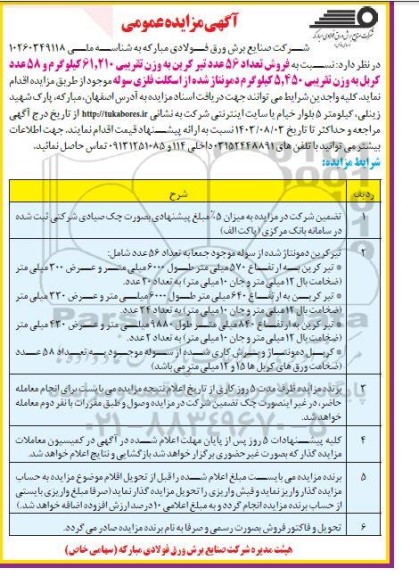 آگهی مزایده عمومی
شرکت صنایع برش ورق فولادی مبارکه
شرکت صنایع برش ورق فولادی مبارکه به شناسه ملی ۱۰۲۶۰۳۴۹۱۱۸
در نظر دارد: نسبت به فروش تعداد ۵۶ عدد تیر کرین به وزن تقریبی ۶۱,۲۱۰ کیلوگرم و ۵۸ عدد
کربل به وزن تقریبی ۵,۴۵۰ کیلوگرم دمونتاژ شده از اسکلت فلزی سوله موجود از طریق مزایده اقدام
نماید. کلیه واجدین شرایط می توانند جهت دریافت اسناد مزایده به آدرس اصفهان، مبارکه، پارک شهید
زینلی، کیلومتر ۵ بلوار خیام یا سایت اینترنتی شرکت به نشانی http://tukabores.ir از تاریخ درج آگهی
مراجعه و حداکثر تا تاریخ ۱۴۰۳/۰۸/۰۳ نسبت به ارائه پیشنهاد قیمت اقدام نمایند. جهت اطلاعات
بیشتر می توانید با تلفن های ۰۳۱۵۲۴۴۸۸۹۱ داخلی ۱۱۴ و ۰۹۱۳۱۲۵۱۰۸۵ تماس حاصل نمائید.
شرایط مزایده:
ردیف شرح
۱ تضمین شرکت در مزایده به میزان ۵٪ مبلغ پیشنهادی بصورت چک صیادی شرکتی ثبت شده
در سامانه بانک مرکزی (پاکت الف)
۲ تیر کرین دمونتاژ شده از سوله موجود جمعا به تعداد ۵۶ عدد شامل:
• تیر کرین به ارتفاع ۵۷۰ میلی متر طول ۶۰۰۰ میلی متر و عرض ۳۰۰ میلی متر
(ضخامت بال ۱۲ میلی متر و جان ۱۰ میلی متر) به تعداد ۳۰ عدد.
• تیر کرین به ارتفاع ۶۴۰ میلی متر طول ۶۰۰۰ میلی متر و عرض ۳۳۰ میلی متر
(ضخامت بال ۱۲ میلی متر و جان ۱۰ میلی متر) به تعداد ۲۴ عدد.
• تیر کرین به ارتفاع ۸۴۰ میلی متر طول ۹۸۸۰ میلی متر و عرض ۴۳۰ میلی متر
(ضخامت بال ۱۲ میلی متر و جان ۱۰ میلی متر) به تعداد ۲ عدد.
• کربل دمونتاژ و برش کاری شده از سوله موجود به تعداد ۵۸ عدد
(ضخامت ورق های کربل ها ۱۵ و ۱۲ میلی متر می باشد)
۳ برنده مزایده ظرف مدت ۵ روز کاری از تاریخ اعلام نتیجه مزایده می بایست برای انجام معامله
حاضر، در غیر اینصورت چک تضمین شرکت در مزایده وصول و طبق مقررات با نفر دوم معامله
خواهد شد.
۴ کلیه پیشنهادات ۵ روز پس از پایان مهلت اعلام شده در آگهی در کمیسیون معاملات
مزایده گذار که بصورت غیر حضوری برگزار خواهد شد بازگشایی و نتایج اعلام خواهد شد.
۵ برنده مزایده می بایست مبلغ اعلام شده را قبل از تحویل اقلام موضوع مزایده به حساب
مزایده گذار واریز نماید و فیش واریزی را تحویل مزایده گذار نماید (صرفا مبلغ واریزی بایستی
از حساب برنده مزایده انجام گردد و به مبلغ اعلامی ۱۰ درصد ارزش افزوده اضافه خواهد شد.)
۶ تحویل و فاکتور فروش بصورت رسمی و صرفا به نام برنده مزایده صادر می گردد.
هیئت مدیره شرکت صنایع برش ورق فولادی مبارکه (سهامی خاص)
۰۲۱-۸۸۳۴۹۶۷۰-۵